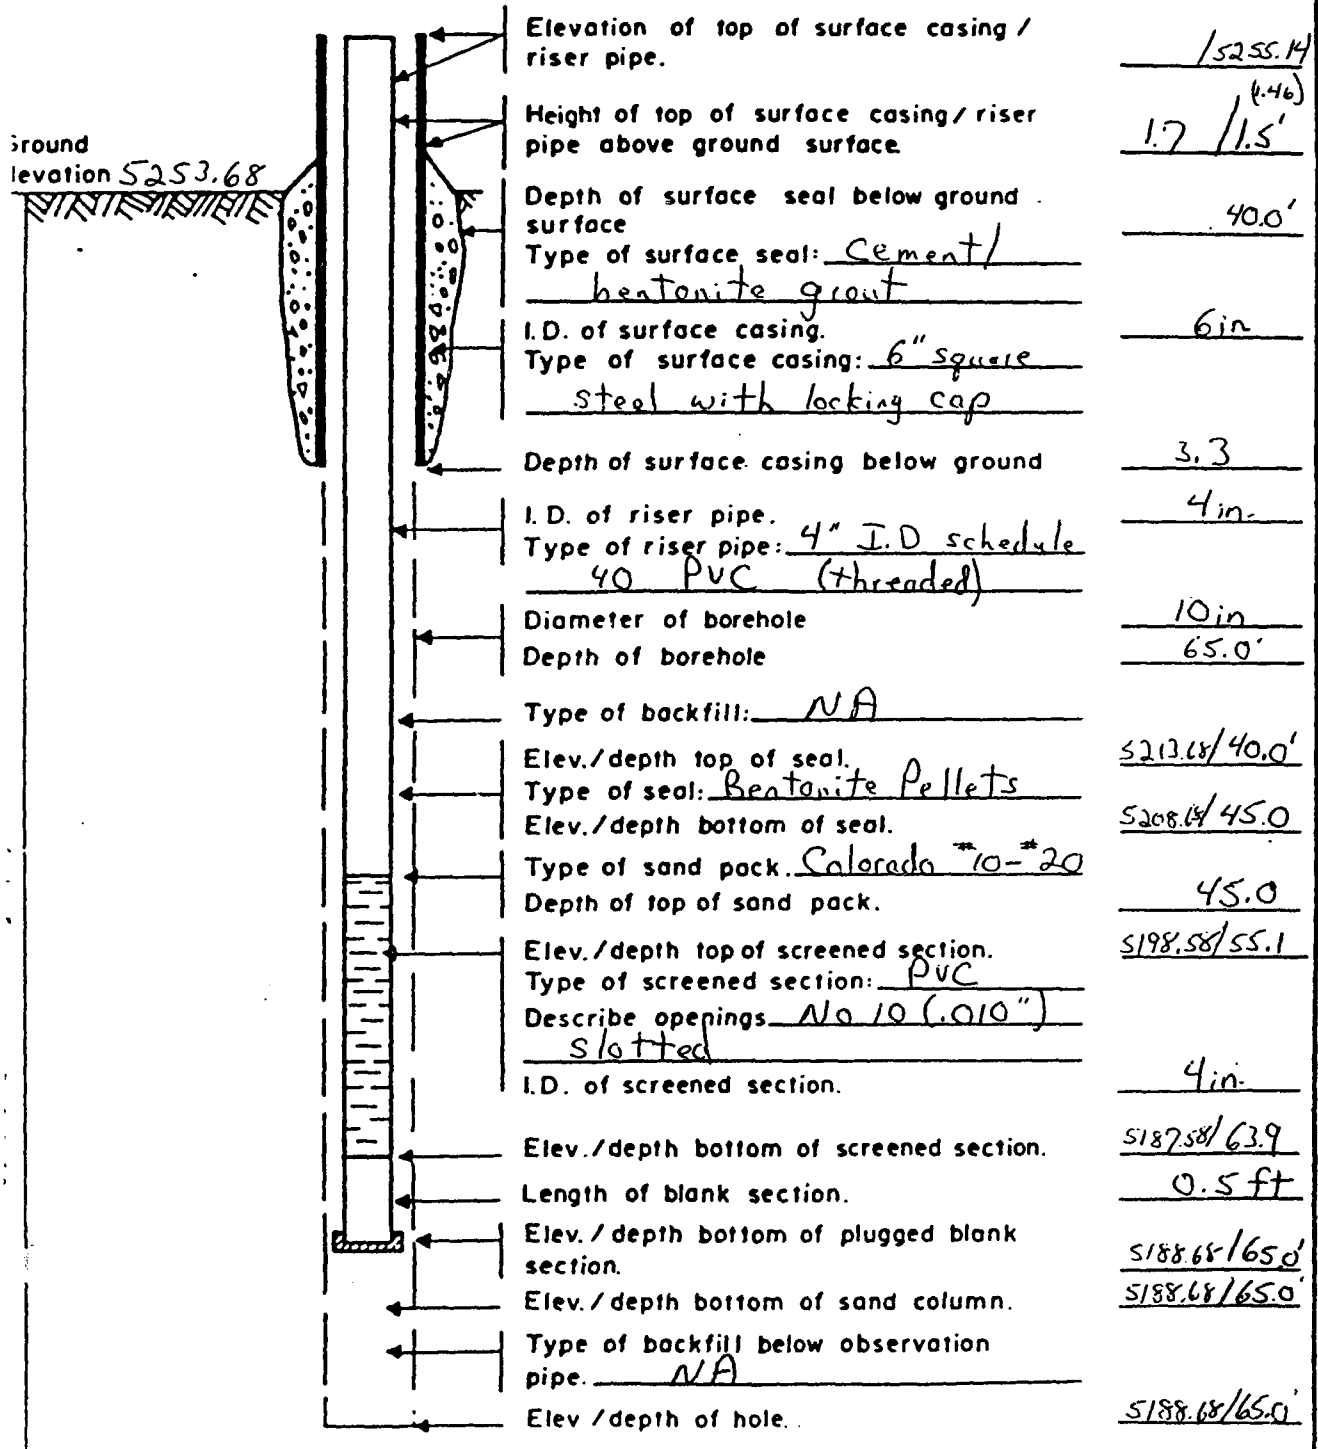 Elevation of top of surface casing /
riser pipe. /5255.14
(1.46)
Height of top of surface casing / riser
pipe above ground surface 1.7 /1.5'
Ground
levation 5253.68
Depth of surface seal below ground
surface 40.0'
Type of surface seal: Cement/
bentonite grout
I.D. of surface casing. 6in
Type of surface casing: 6" square
steel with locking cap
Depth of surface casing below ground 3.3
I.D. of riser pipe. 4in.
Type of riser pipe: 4" I.D schedule
40 PVC (threaded)
Diameter of borehole 10in
Depth of borehole 65.0'
Type of backfill: NA
Elev./depth top of seal. 5213.68/40.0'
Type of seal: Bentonite Pellets
Elev./depth bottom of seal. 5208.68/45.0
Type of sand pack. Colorado #10-#20
Depth of top of sand pack. 45.0
Elev./depth top of screened section. 5198.58/55.1
Type of screened section: PVC
Describe openings No 10 (.010")
slotted
I.D. of screened section. 4in.
Elev./depth bottom of screened section. 5187.58/63.9
Length of blank section. 0.5 ft
Elev./depth bottom of plugged blank
section. 5188.68/65.0'
Elev./depth bottom of sand column. 5188.68/65.0'
Type of backfill below observation
pipe. NA
Elev/depth of hole. 5188.68/65.0'